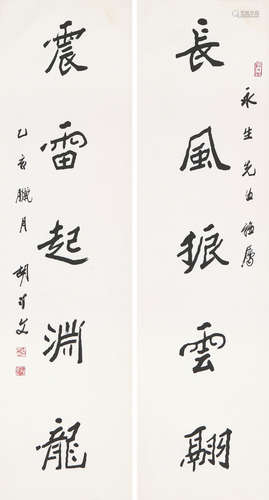 長風振雲翮
永生先生雅屬
震雷起淵龍
乙亥臘月 胡